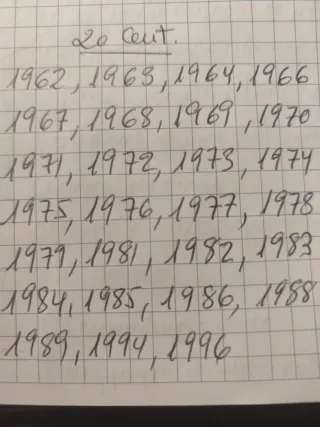 20 Cent.
1962, 1963, 1964, 1966
1967, 1968, 1969, 1970
1971, 1972, 1973, 1974
1975, 1976, 1977, 1978
1979, 1981, 1982, 1983
1984, 1985, 1986, 1988
1989, 1994, 1996